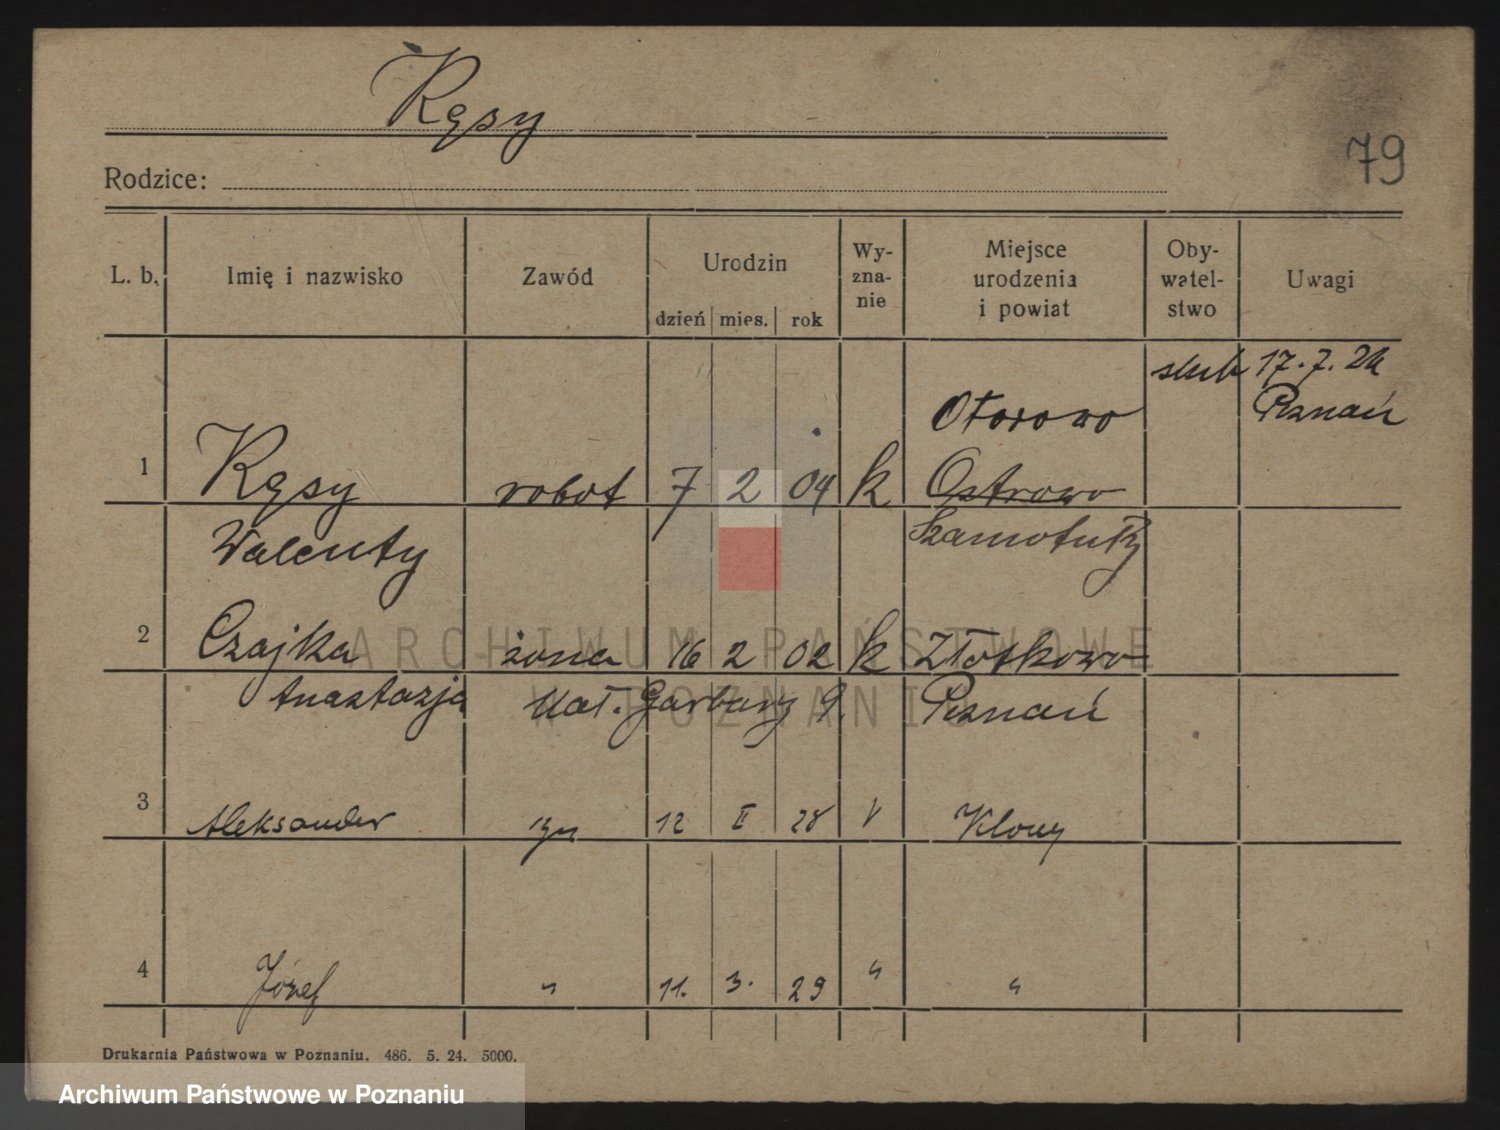 Kęsy
79
Rodzice:
L. b. Imię i nazwisko Zawód Urodzin dzień mies. rok Wy-zna-nie Miejsce urodzenia i powiat Oby-watel-stwo Uwagi
ślub 17. 7. 24
Otorowo Poznań
1 Kęsy robot 7 2 04 k Ostrowo
Walenty Szamotuły
2 Czajka żona 16 2 02 k Złotkowo
Anastazja Mał. Garbary 9. Poznań
3 Aleksander syn 12 II 28 Klony
4 Józef " 11. 3. 29 " "
Drukarnia Państwowa w Poznaniu. 486. 5. 24. 5000.
ARCHIWUM PAŃSTWOWE
W POZNANIU
Archiwum Państwowe w Poznaniu